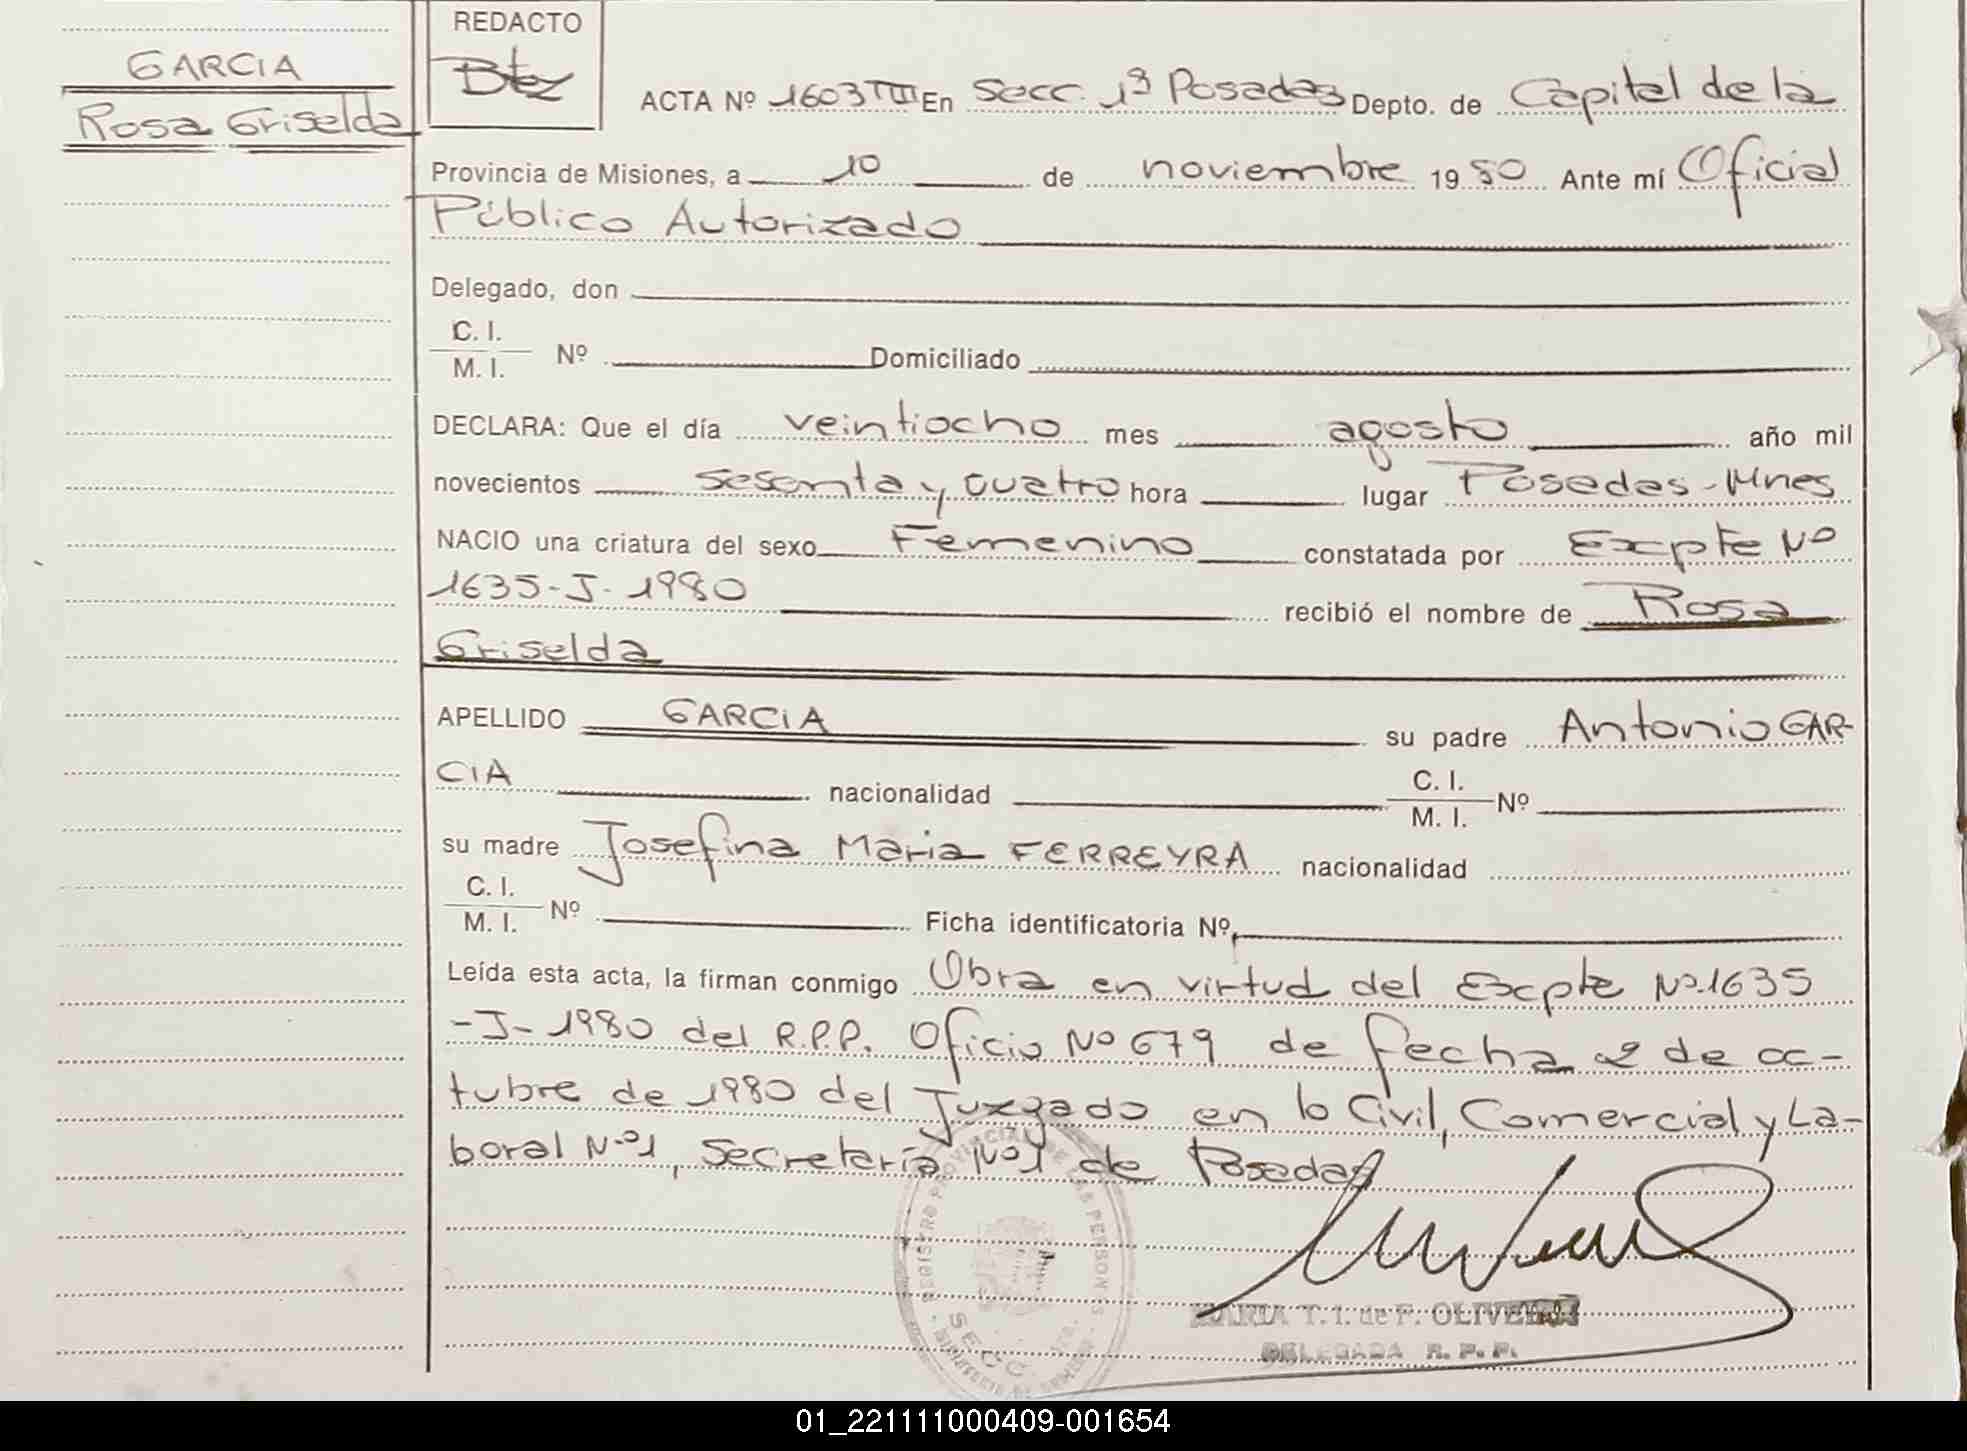 GARCIA
Rosa Griselda
REDACTO
Btez
ACTA Nº 1603 TIII En Secc. 1ª Posadas Depto. de Capital de la
Provincia de Misiones, a 10 de noviembre 1980 Ante mí Oficial
Público Autorizado
Delegado, don
C. I.
M. I. Nº Domiciliado
DECLARA: Que el día veintiocho mes agosto año mil
novecientos sesenta y cuatro hora lugar Posadas-Mnes
NACIO una criatura del sexo Femenino constatada por Expte Nº
1635-J-1980 recibió el nombre de Rosa
Griselda
APELLIDO GARCIA su padre Antonio GAR-
CIA nacionalidad C. I.
M. I. Nº
su madre Josefina Maria FERREYRA nacionalidad
C. I.
M. I. Nº Ficha identificatoria Nº
Leída esta acta, la firman conmigo Obra en virtud del Expte Nº.1635
-J-1980 del R.P.P. Oficio Nº 679 de fecha 2 de oc-
tubre de 1980 del Juzgado en lo Civil, Comercial y La-
boral Nº1, Secretaría Nº1 de Posadas
REGISTRO PROVINCIAL DE LAS PERSONAS
SECC. 1ra.
MARIA T. I. de F. OLIVEIRA
DELEGADA R. P. P.
01_221111000409-001654